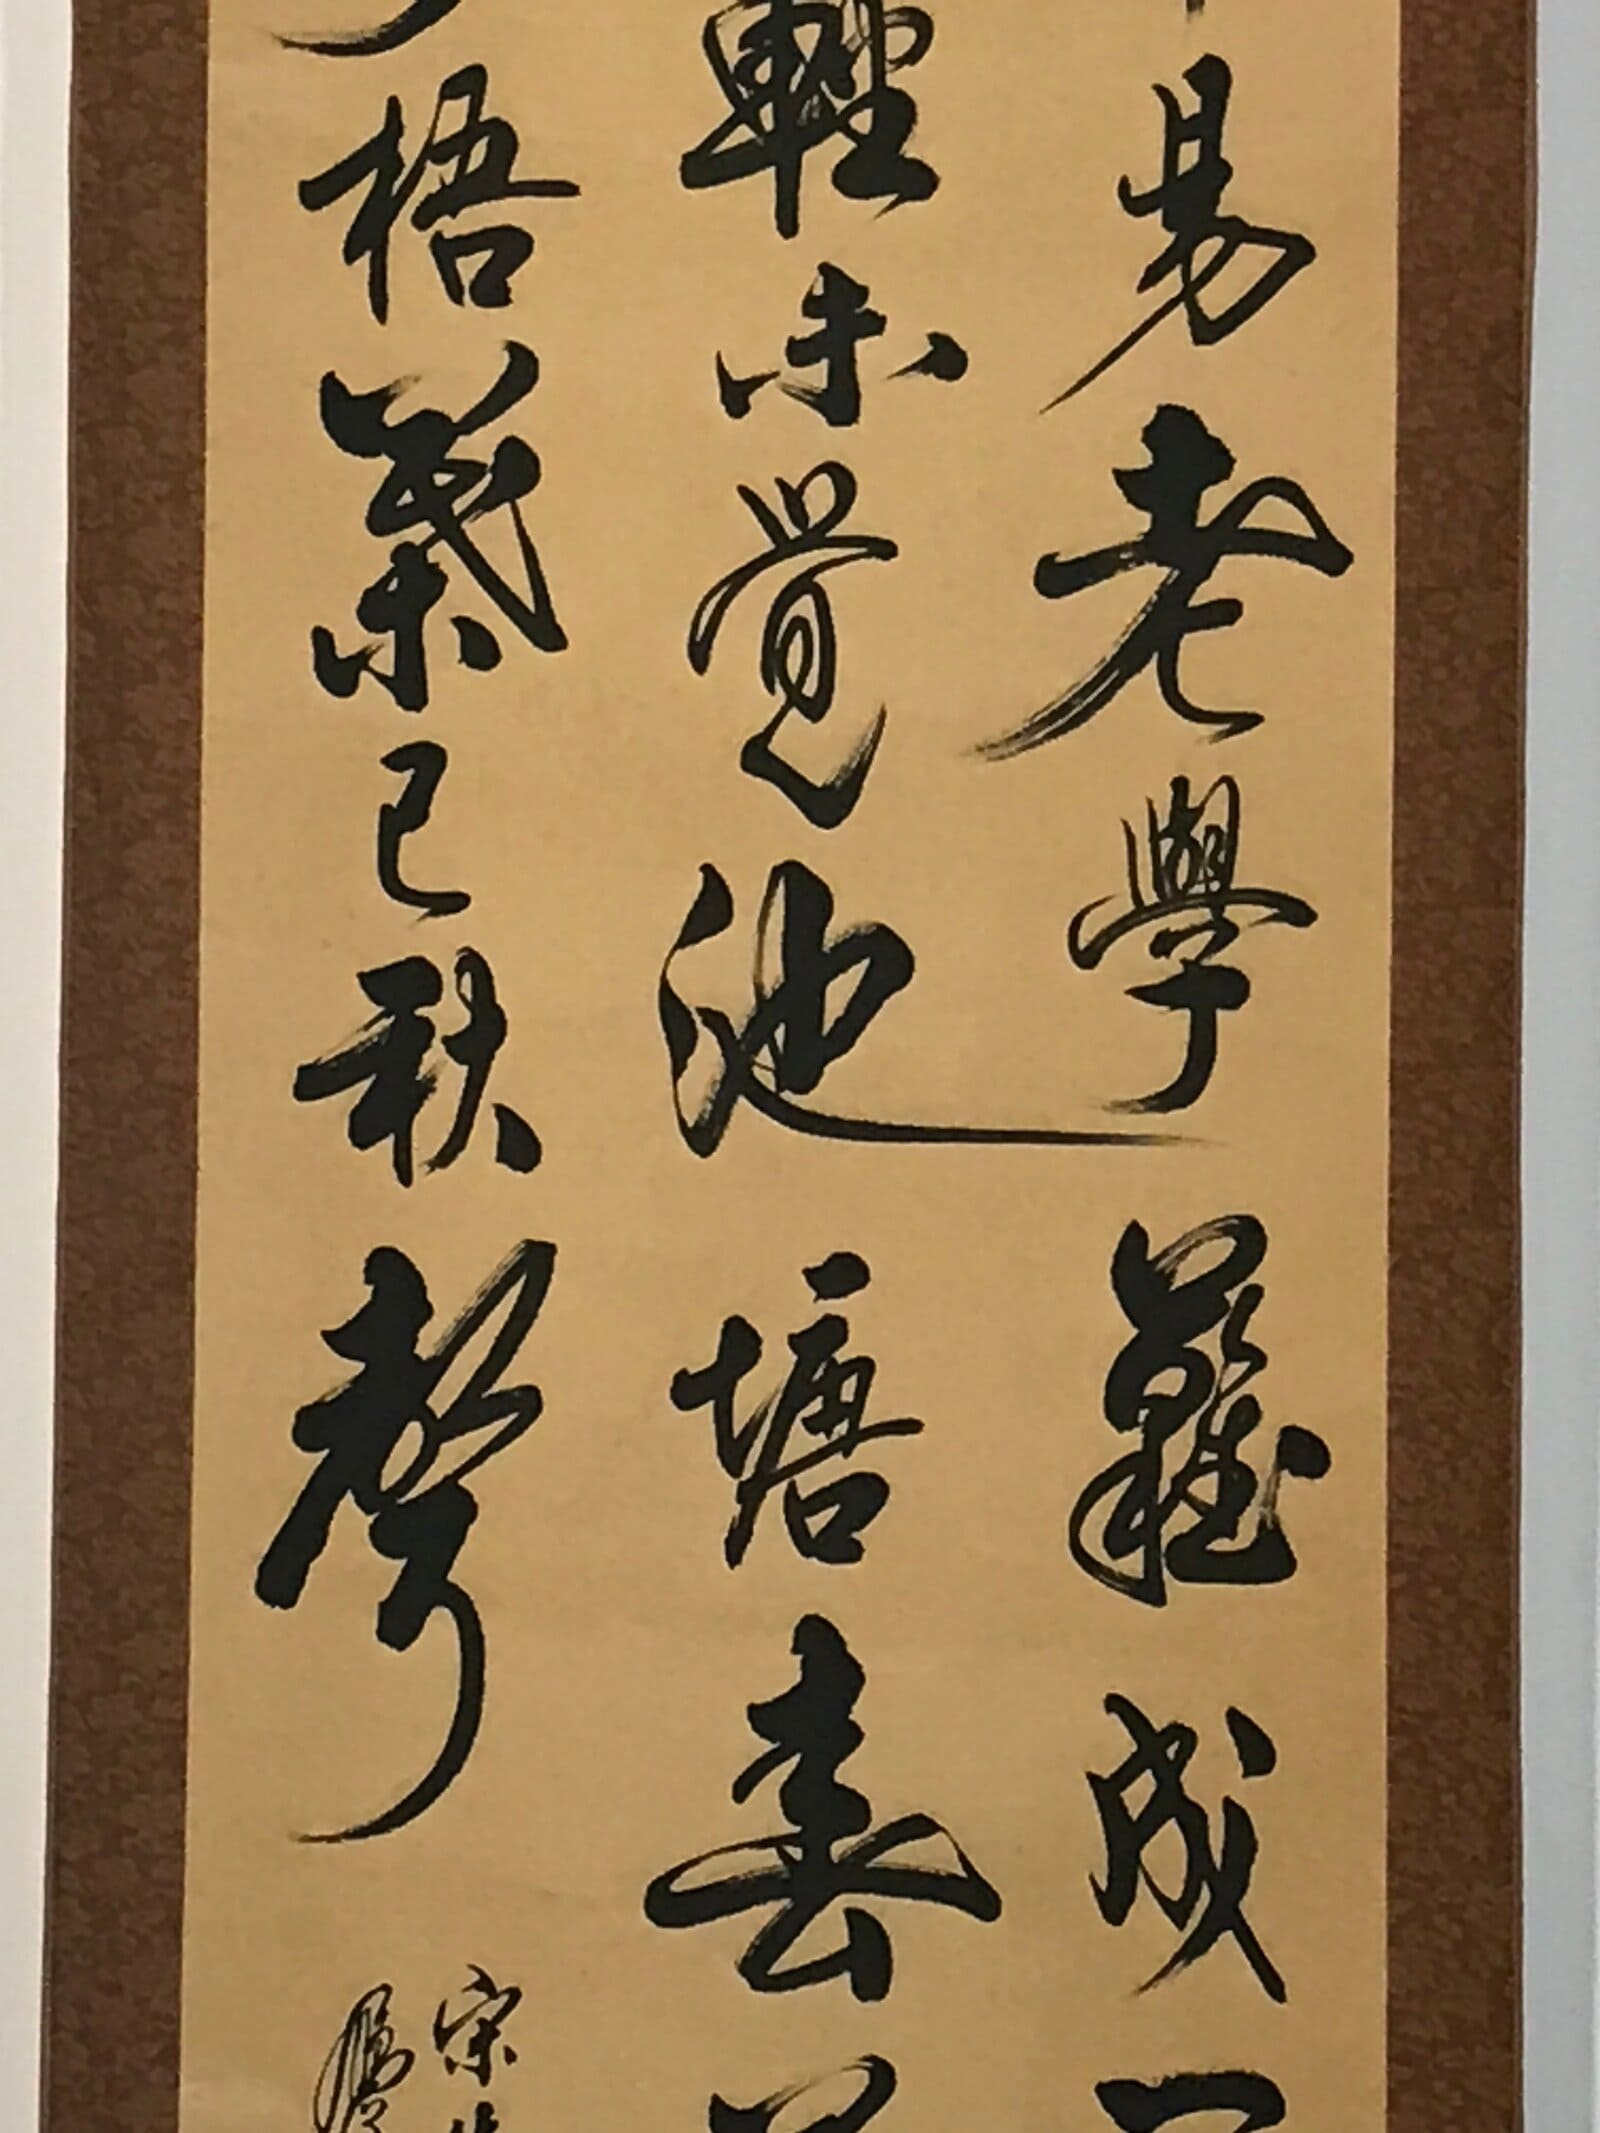 易老學難成一
輕未覺池塘春草
梧葉已秋聲
宋